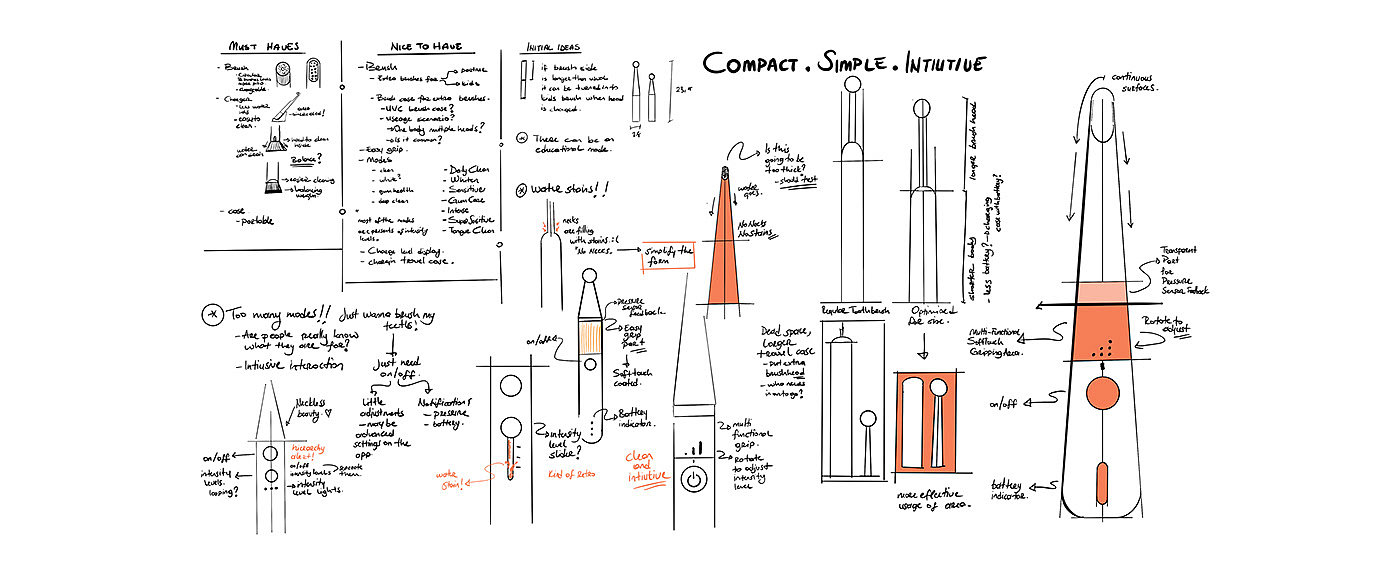 MUST HAVES
- Brush
- Charger
- easy to clean.
water
Balance?
- easier cleaning
- balancing weight?
- case
- portable
NICE TO HAVE
- Brush
- Extra brushes for
- kids
- Brush case for extra brushes.
- UVC brush case?
- useage scenario?
- One body multiple heads?
- is it common?
- Easy grip.
- Modes
- clean
- white?
- gum health
- deep clean
- Daily Clean
- Whiten
- Sensitive
- Gum Care
- Intense
- Super Sensitive
- Tongue Clean
most of the modes
are presets of intensity
levels.
- Charge level display.
- charging travel case.
INITIAL IDEAS
if brush side
is longer than usual
it can be turned into
kids brush when head
is changed.
There can be an
educational mode.
Water stains!!
necks
are filling
with stains. :(
"No Necks.
simplify the
form
COMPACT. SIMPLE. INTIUTIVE
Is this
going to be
too thick?
- should test
water
goes.
No Necks
No Stains
longer brush head
shorter body
- less battery? → charging
case with battery?
Regular Toothbrush
Optimized
for size.
Dead space,
larger
travel case
- put extra
brushhead
- who needs
in onthego?
more effective
usage of area.
continuous
surfaces.
Transparent
Part
for
Pressure
Sensor Feedback
Rotate to
adjust
Multi-Functional
Softtouch
Gripping Area.
on/off
battery
indicator.
Too many modes!!
- Are people really know
what they are for?
- Intiusive interaction
Just wanna brush my
teeths!
Just need
on/off
Little
adjustments
- may be
advanced
settings on the
app
Notifications
- pressure
- battery.
Neckless
beauty. ♡
on/off
intensity
levels.
looping?
hierarchy
alert!
on/off
intensity levels
seperate
them.
intensity
level lights.
pressure
sensor
feedback.
Easy
grip
part
Soft touch
coated.
on/off
Battery
indicator.
Intensity
level
slider?
water
stain!
kind of retro
clean
and
intiutive
multi
functional
grip.
Rotate
to adjust
intensity
level